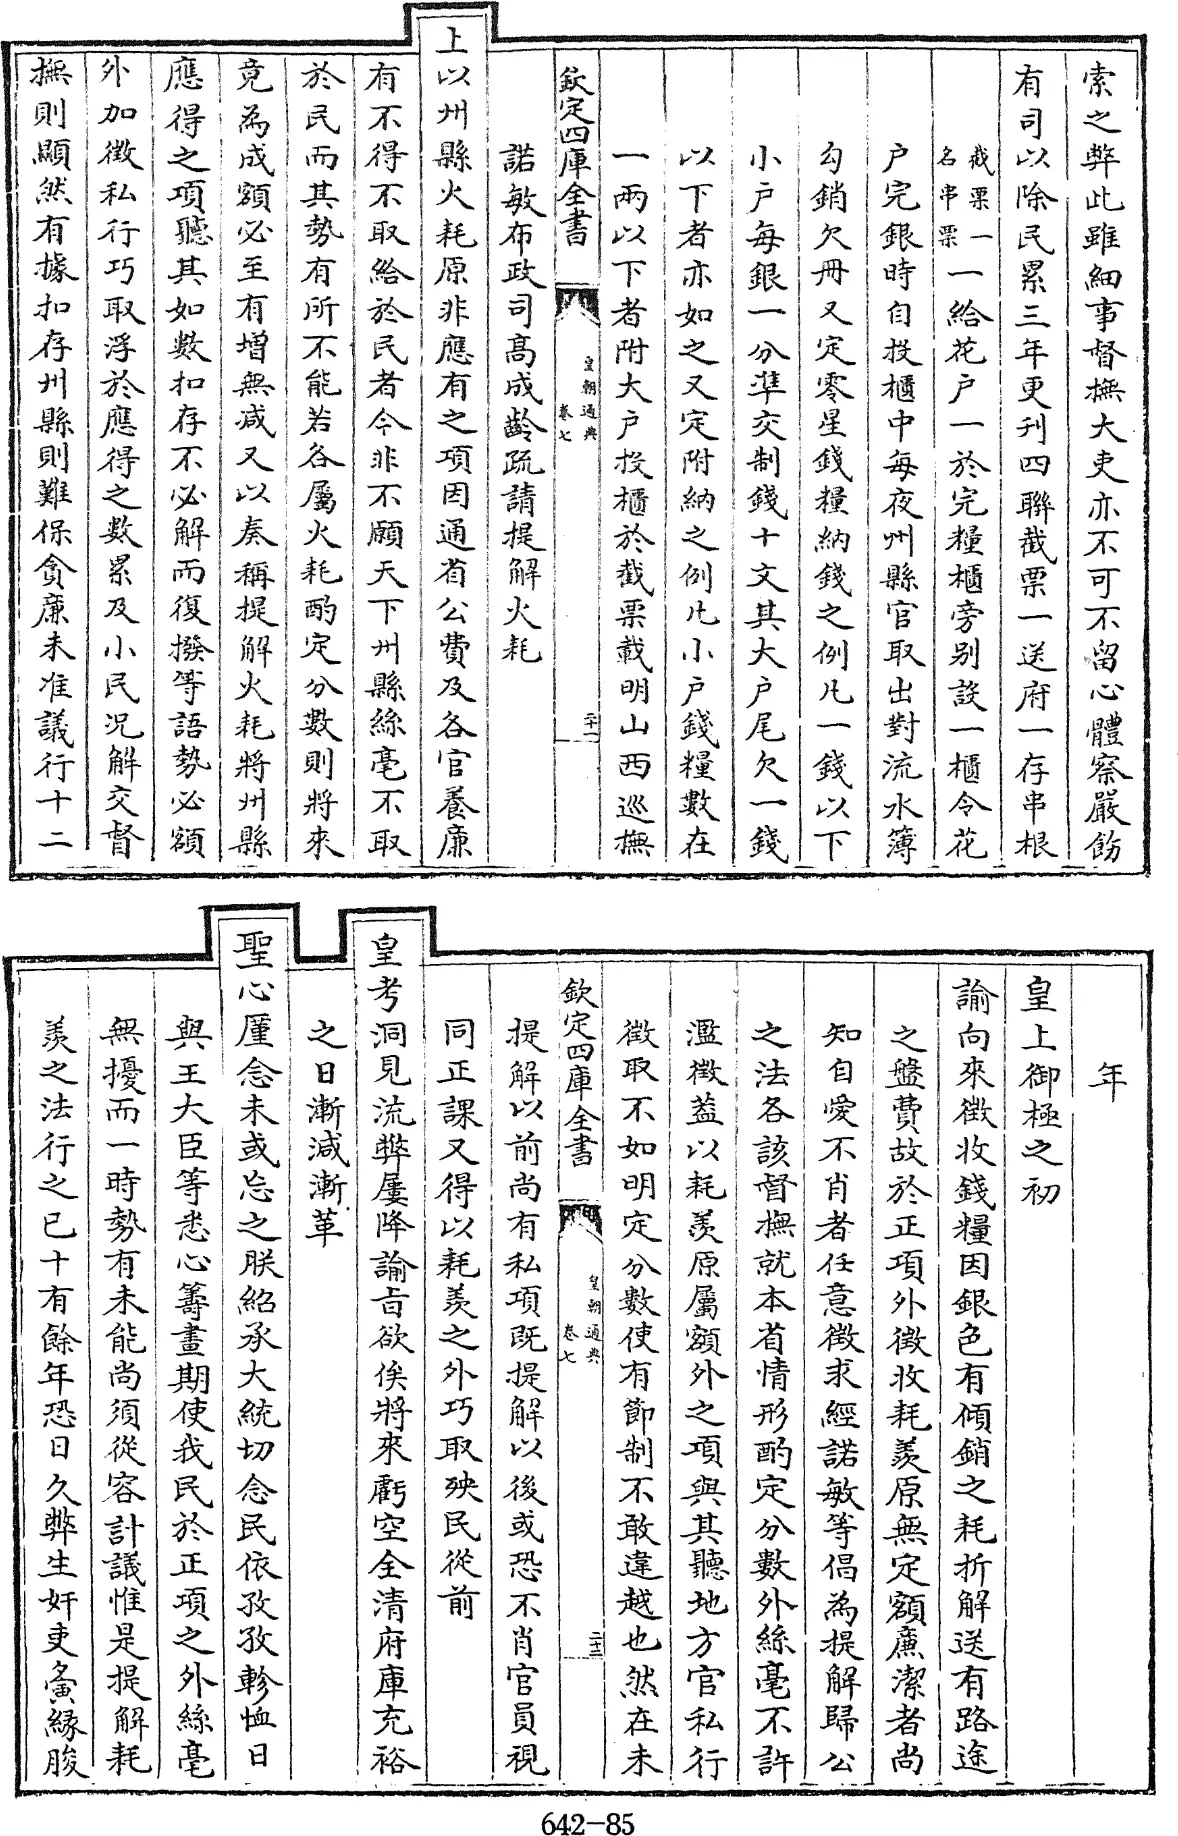 索之弊此雖細事督撫大吏亦不可不留心體察嚴飭
有司以除民累三年更刋四聯截票一送府一存串根
截票一名串票一給花户一於完糧櫃旁别設一櫃令花
户完銀時自投櫃中每夜州縣官取出對流水簿
勾銷欠冊又定零星錢糧納錢之例凡一錢以下
小户每銀一分準交制錢十文其大户尾欠一錢
以下者亦如之又定附納之例凡小户錢糧數在
一兩以下者附大户投櫃於截票載明山西巡撫
欽定四庫全書
皇朝通典
卷七
二十一
諾敏布政司高成齡疏請提解火耗
上以州縣火耗原非應有之項因通省公費及各官養廉
有不得不取給於民者今非不願天下州縣絲毫不取
於民而其勢有所不能若各屬火耗酌定分數則將來
竟為成額必至有增無减又以奏稱提解火耗將州縣
應得之項聽其如數扣存不必解而復撥等語勢必額
外加徴私行巧取浮於應得之數累及小民况解交督
撫則顯然有據扣存州縣則難保貪廉未准議行十二
年
皇上御極之初
諭向來徴收錢糧因銀色有傾銷之耗折解送有路途
之盤費故於正項外徴收耗羨原無定額廉潔者尚
知自愛不肖者任意徴求經諾敏等倡為提解歸公
之法各該督撫就本省情形酌定分數外絲毫不許
濫徴葢以耗羨原屬額外之項與其聽地方官私行
徴取不如明定分數使有節制不敢違越也然在未
欽定四庫全書
皇朝通典
卷七
二十二
提解以前尚有私項既提解以後或恐不肖官員視
同正課又得以耗羨之外巧取殃民從前
皇考洞見流弊屢降諭㫖欲俟將來虧空全清府庫充裕
之日漸減漸革
聖心厪念未或忘之朕紹承大統切念民依孜孜軫恤日
與王大臣等悉心籌畫期使我民於正項之外絲毫
無擾而一時勢有未能尚須從容計議惟是提解耗
羨之法行之已十有餘年恐日久弊生奸吏夤緣朘
642-85